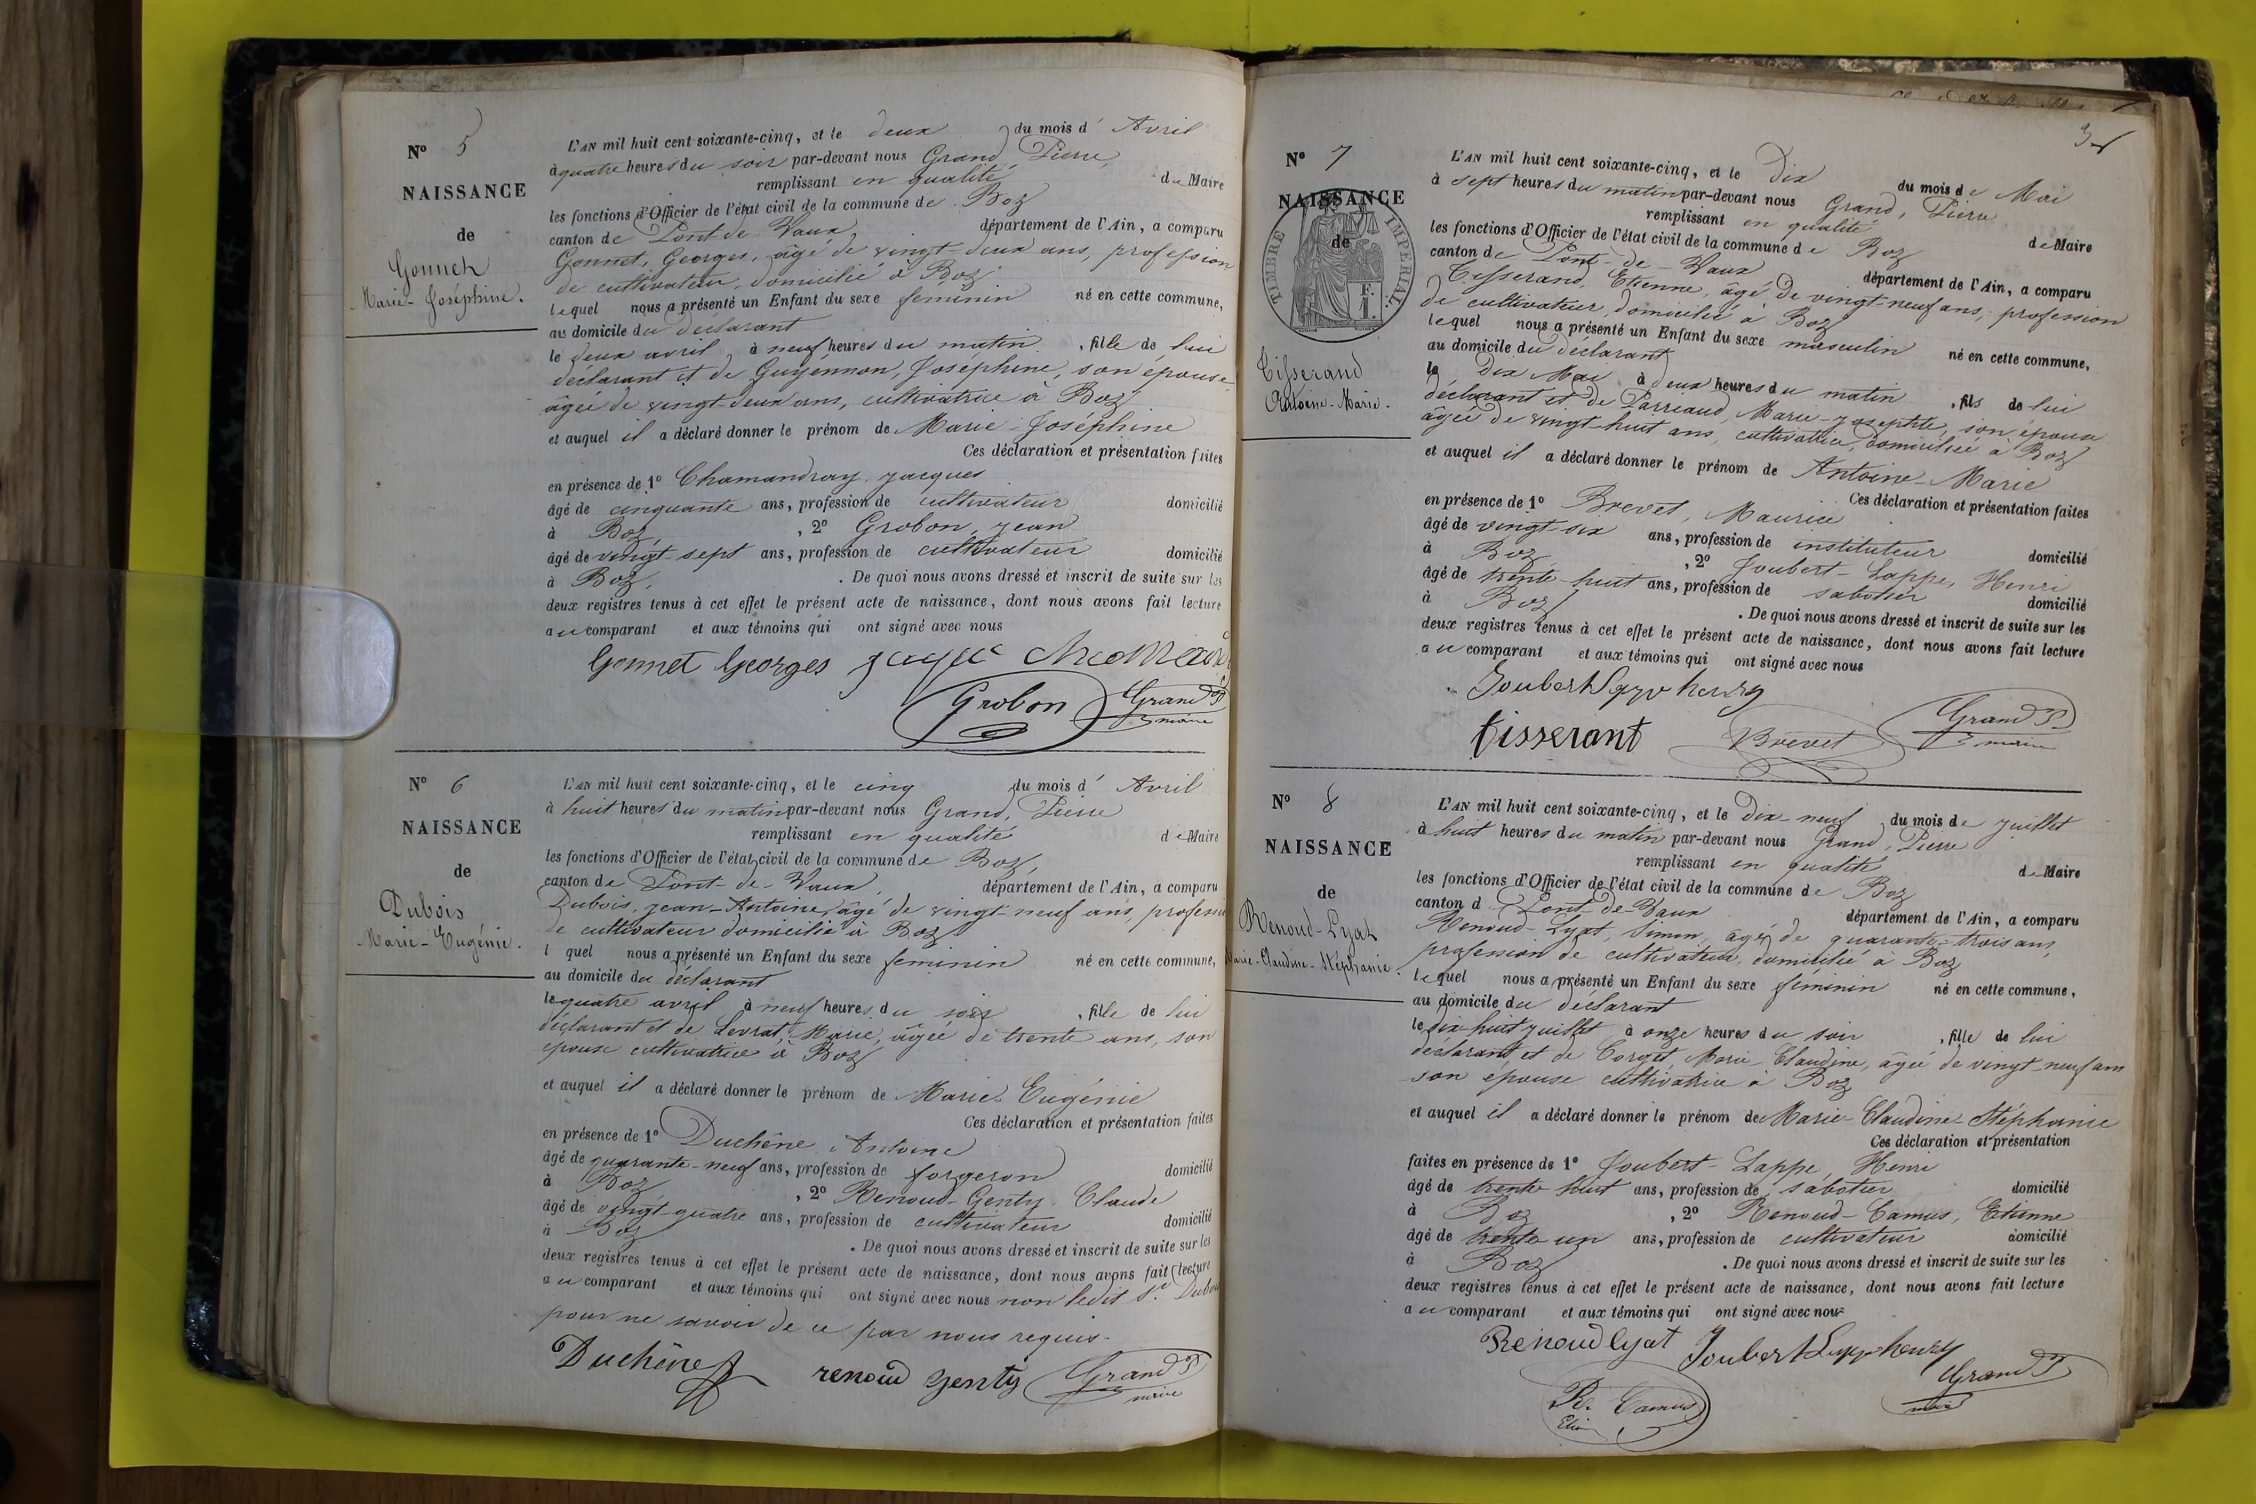 N° 5
NAISSANCE
de
Gonnet
Marie-Joséphine.
L'AN mil huit cent soixante-cinq, et le deux du mois d' Avril
à quatre heures du soir par-devant nous Grand, Pierre,
remplissant en qualité de Maire
les fonctions d'Officier de l'état civil de la commune de Boz
canton de Pont-de-Vaux, département de l'Ain, a comparu
Gonnet, Georges, âgé de vingt-deux ans, profession
de cultivateur, domicilié à Boz
lequel nous a présenté un Enfant du sexe féminin né en cette commune,
au domicile du déclarant
le deux avril à neuf heures du matin, fille de lui
déclarant et de Guyennon, Joséphine, son épouse
âgée de vingt-deux ans, cultivatrice à Boz
et auquel il a déclaré donner le prénom de Marie-Joséphine
Ces déclaration et présentation faites
en présence de 1° Chamandray, Jacques
âgé de cinquante ans, profession de cultivateur domicilié
à Boz, , 2° Grobon, Jean
âgé de vingt-sept ans, profession de cultivateur domicilié
à Boz, . De quoi nous avons dressé et inscrit de suite sur les
deux registres tenus à cet effet le présent acte de naissance, dont nous avons fait lecture
au comparant et aux témoins qui ont signé avec nous
Gonnet Georges
Grobon Grand P
maire
N° 6
NAISSANCE
de
Dubois
Marie-Eugénie.
L'AN mil huit cent soixante-cinq, et le cinq du mois d' Avril
à huit heures du matin par-devant nous Grand, Pierre
remplissant en qualité de Maire
les fonctions d'Officier de l'état civil de la commune de Boz,
canton de Pont-de-Vaux, département de l'Ain, a comparu
Dubois, Jean-Antoine, âgé de vingt-neuf ans, profession
de cultivateur domicilié à Boz
l quel nous a présenté un Enfant du sexe féminin né en cette commune,
au domicile du déclarant
le quatre avril à neuf heures du soir, fille de lui
déclarant et de Levrat, Marie, âgée de trente ans, son
épouse cultivatrice à Boz
et auquel il a déclaré donner le prénom de Marie-Eugénie
Ces déclaration et présentation faites
en présence de 1° Duchêne Antoine
âgé de quarante-neuf ans, profession de forgeron domicilié
à Boz , 2° Renoud-Genty, Claude
âgé de vingt-quatre ans, profession de cultivateur domicilié
à Boz . De quoi nous avons dressé et inscrit de suite sur les
deux registres tenus à cet effet le présent acte de naissance, dont nous avons fait lecture
au comparant et aux témoins qui ont signé avec nous non ledit Sr. Dubois
pour ne savoir de ce par nous requis.
Duchêne renoud genty Grand P
maire
3
N° 7
NAISSANCE
de
TIMBRE IMPERIAL.
F.
1.
Tisserand
Antoine-Marie.
L'AN mil huit cent soixante-cinq, et le Dix du mois de Mai
à sept heures du matin par-devant nous Grand, Pierre
remplissant en qualité de Maire
les fonctions d'Officier de l'état civil de la commune de Boz
canton de Pont-de-Vaux département de l'Ain, a comparu
Tisserand, Etienne, âgé de vingt-neuf ans, profession
de cultivateur, domicilié à Boz
lequel nous a présenté un Enfant du sexe masculin né en cette commune,
au domicile du déclarant
le dix Mai à deux heures du matin, fils de lui
déclarant et de Parriaud, Marie-Josephte, son épouse
âgée de vingt-huit ans, cultivatrice, domiciliée à Boz
et auquel il a déclaré donner le prénom de Antoine-Marie
Ces déclaration et présentation faites
en présence de 1° Brevet, Maurice
âgé de vingt-six ans, profession de instituteur domicilié
à Boz , 2° Joubert-Lappe, Henri
âgé de trente-huit ans, profession de sabotier domicilié
à Boz . De quoi nous avons dressé et inscrit de suite sur les
deux registres tenus à cet effet le présent acte de naissance, dont nous avons fait lecture
au comparant et aux témoins qui ont signé avec nous
tisserant Brevet Grand P
maire
N° 8
NAISSANCE
de
Renoud-Lyat
Marie-Claudine-Stéphanie.
L'AN mil huit cent soixante-cinq, et le Dix-neuf du mois de juillet
à huit heures du matin par-devant nous Grand, Pierre
remplissant en qualité de Maire
les fonctions d'Officier de l'état civil de la commune de Boz
canton d Pont-de-Vaux département de l'Ain, a comparu
Renoud-Lyat, Simon, âgé de quarante-trois ans,
profession de cultivateur, domicilié à Boz
lequel nous a présenté un Enfant du sexe féminin né en cette commune,
au domicile du déclarant
le dix-huit juillet à onze heures du soir, fille de lui
déclarant et de Corget Marie Claudine, âgée de vingt-neuf ans
son épouse cultivatrice à Boz
et auquel il a déclaré donner le prénom de Marie-Claudine-Stéphanie
Ces déclaration et présentation
faites en présence de 1° Joubert-Lappe, Henri
âgé de trente-huit ans, profession de sabotier domicilié
à Boz , 2° Renoud-Camus, Etienne
âgé de trente-un ans, profession de cultivateur domicilié
à Boz . De quoi nous avons dressé et inscrit de suite sur les
deux registres tenus à cet effet le présent acte de naissance, dont nous avons fait lecture
au comparant et aux témoins qui ont signé avec nous
Renoud lyat
Grand P
R. Camus maire